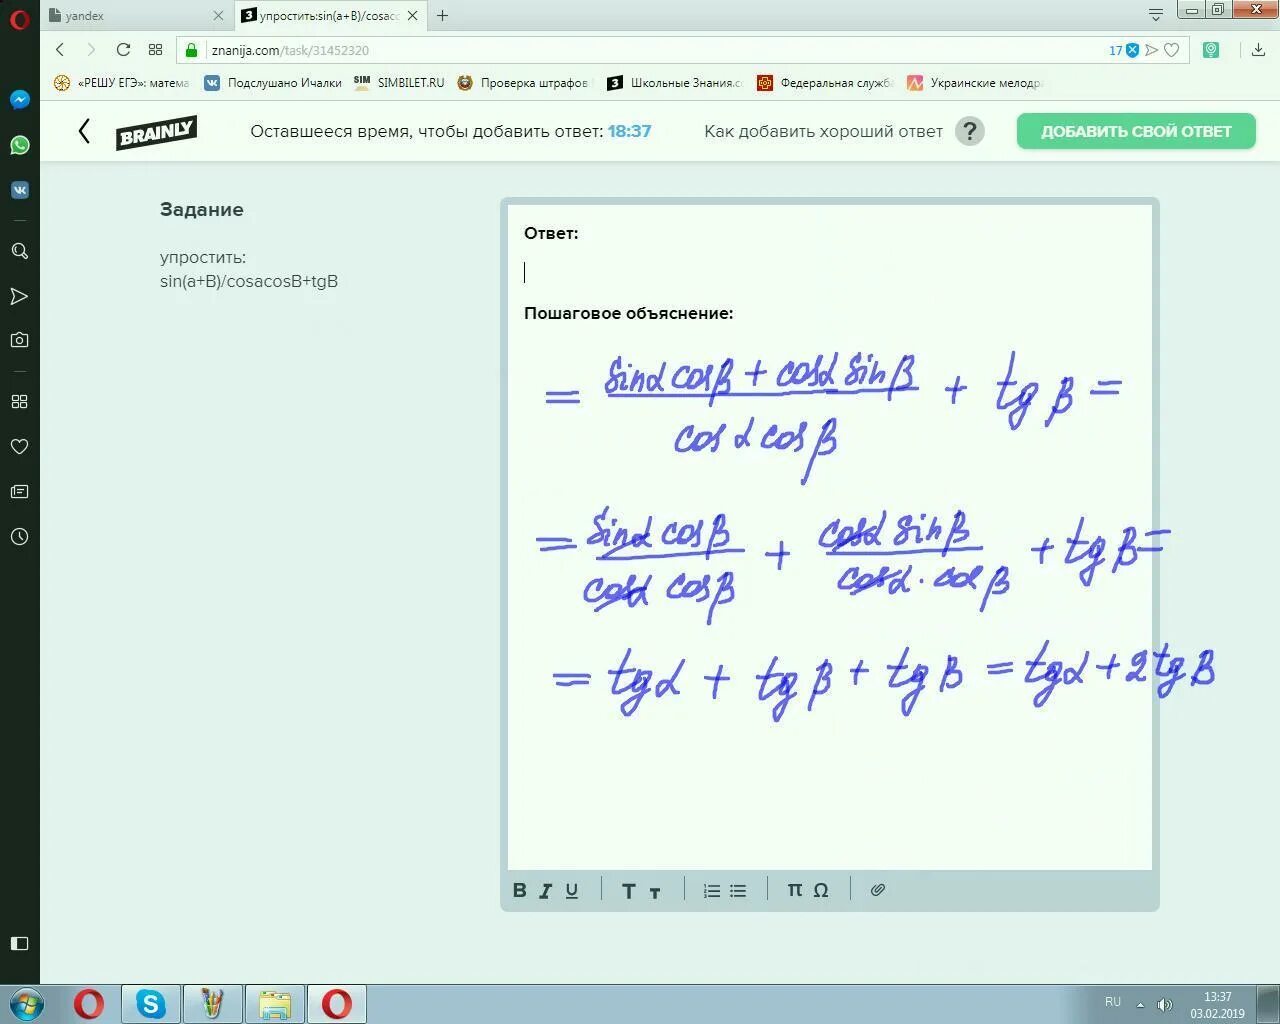 yandex
упростить:sin(a+B)/cosacc
znanija.com/task/31452320
17
«РЕШУ ЕГЭ»: матема
Подслушано Ичалки
SIMBILET.RU
Проверка штрафов
Школьные Знания.c
Федеральная служб
Украинские мелодр
BRAINLY
Оставшееся время, чтобы добавить ответ: 18:37
Как добавить хороший ответ ?
ДОБАВИТЬ СВОЙ ОТВЕТ
Задание
упростить:
sin(a+B)/cosacosB+tgB
Ответ:
Пошаговое объяснение:
= (sinα cosβ + cosα sinβ) / (cosα cosβ) + tgβ =
= (sinα cosβ) / (cosα cosβ) + (cosα sinβ) / (cosα · cosβ) + tgβ =
= tgα + tgβ + tgβ = tgα + 2tgβ
B I U T т π Ω
RU
13:37
03.02.2019